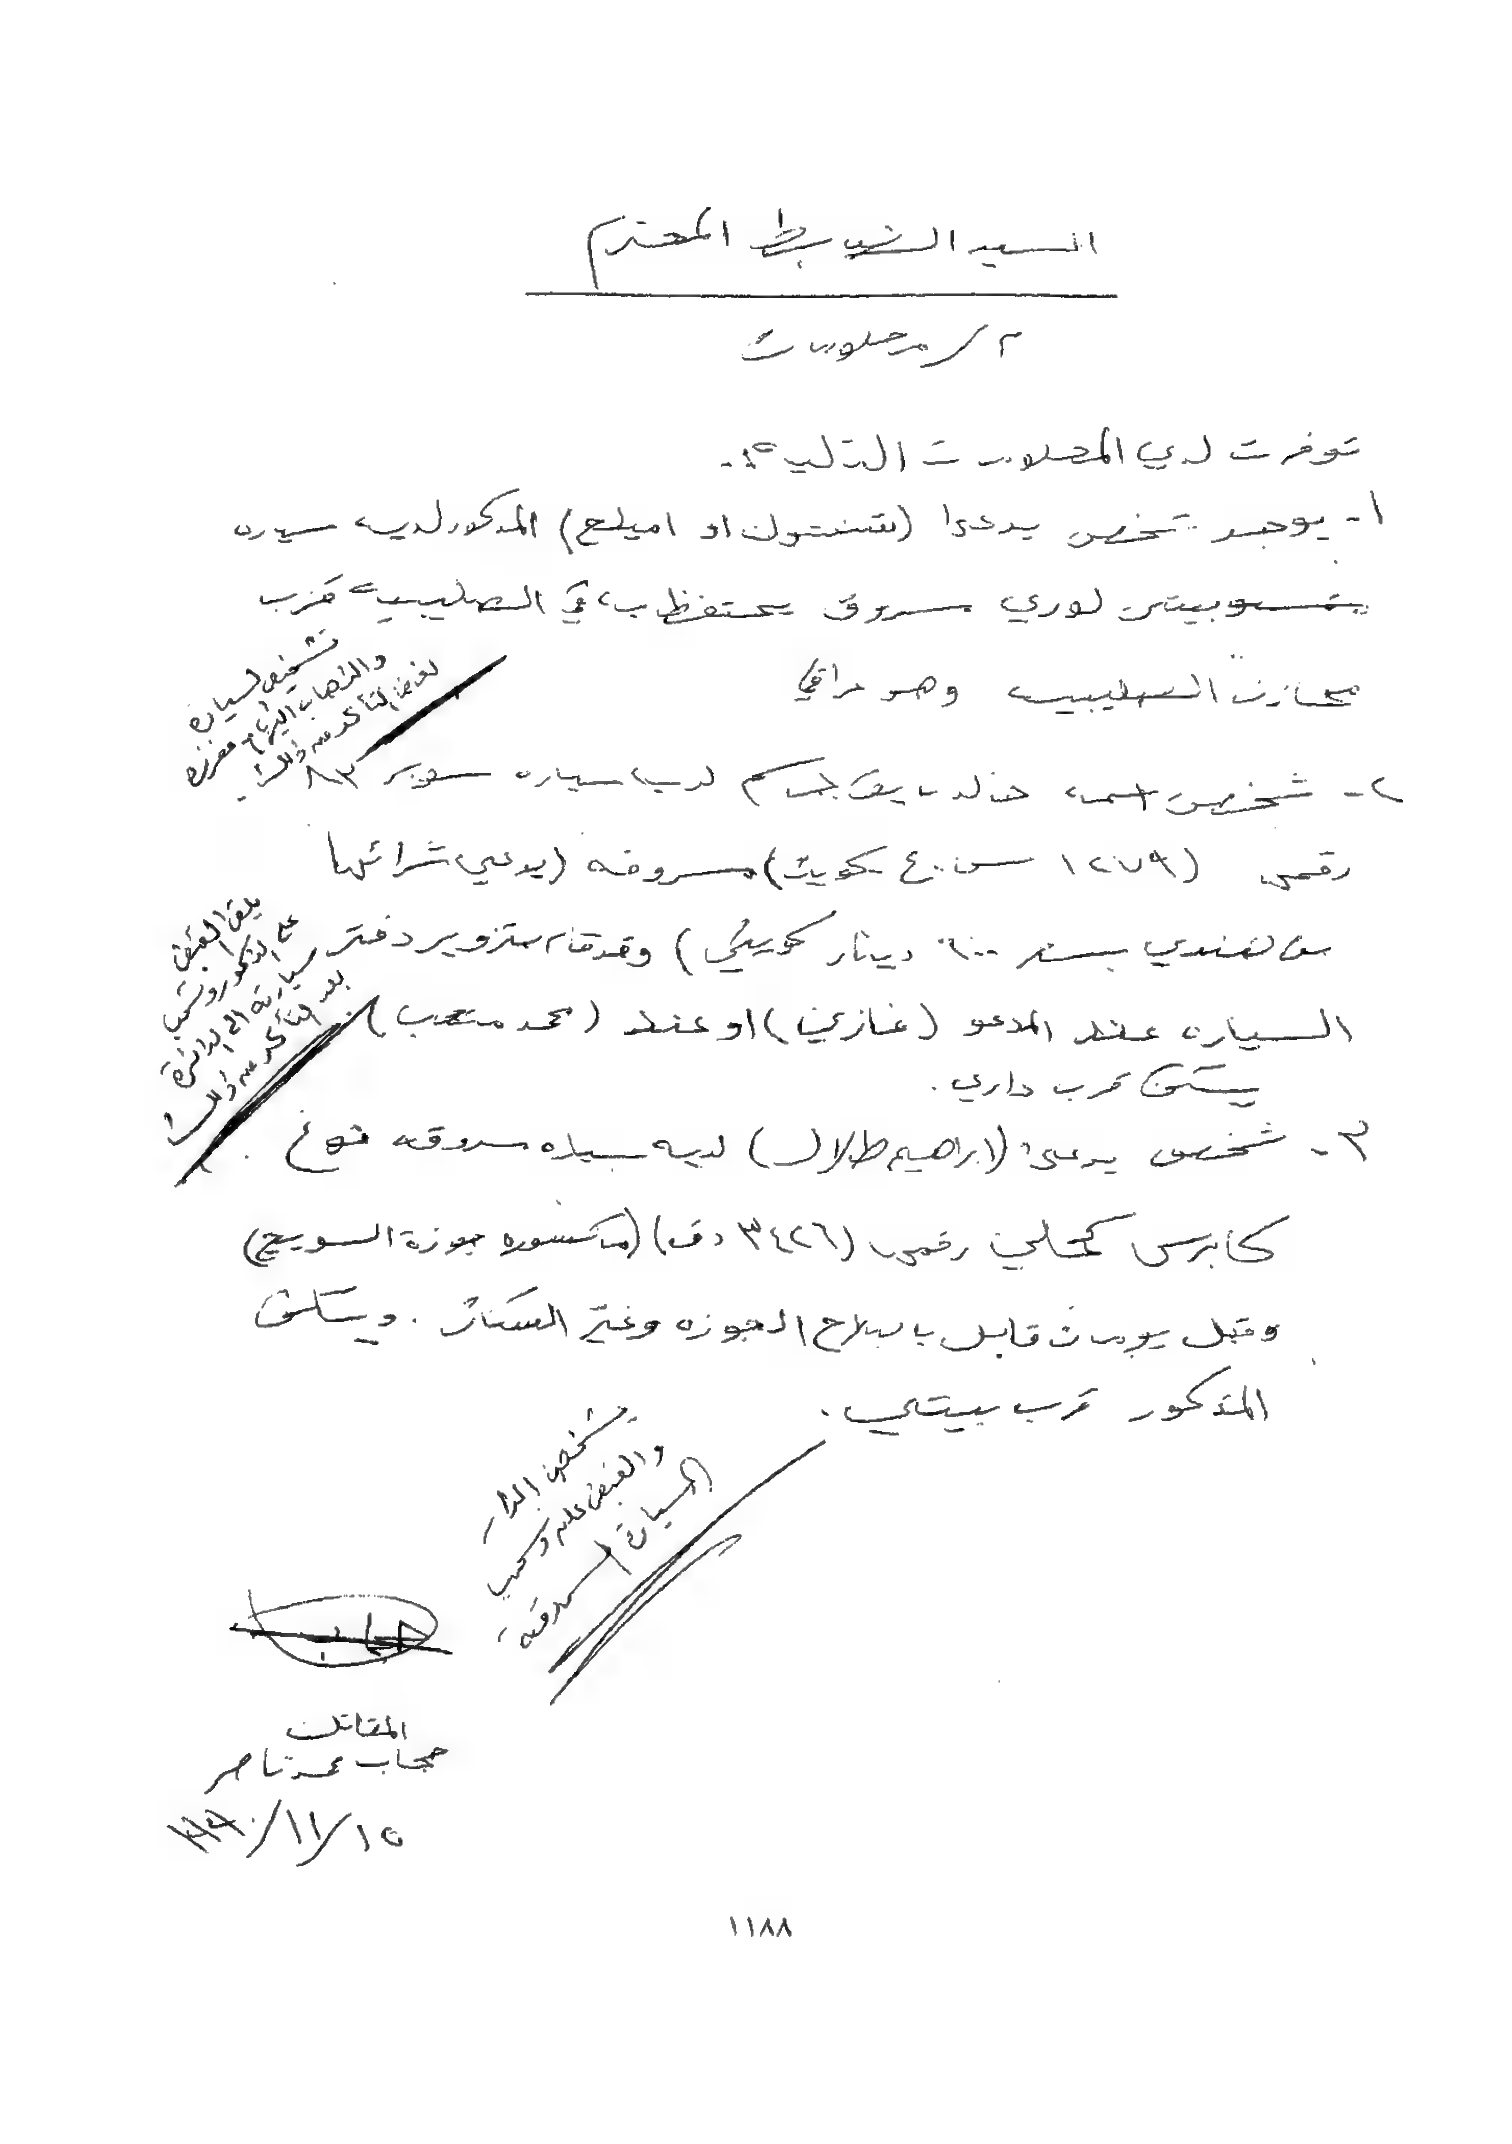 السيد الضابط المحترم
م / معلومات
توفرت لدي المعلومات التاليه :-
١- يوجد شخص يدعى (شنتول او اميلح) المذكور لديه سياره
متسوبيشي لوري مسروق يحتفظ بها في الصليبيه قرب
مخازن الصليبيه وهو عراقي
تشخيص السيارة
والذهاب اليها مع مفرزه
لغرض التأكد من ذلك
٢- شخص اسمه خالد لديه سياره سوبر ٨٣
رقم (١٢٧٩ ٤٠ كويت) مسروقه (يدعي شرائها
من هندي بسعر ٦٠٠ دينار كويتي) وقد قام بتزوير دفتر
السياره عند المدعو (غازي) او عند (محمد متعب)
يسكن قرب داري .
يلقى القبض
على المذكور وتسحب
سيارته الى الدائرة
بعد التأكد من ذلك
٣- شخص يدعى (ابراهيم طلال) لديه سياره مسروقه نوع
كابرس كحلي رقم (٣٤٢٦ د ف) (مكسوره جوزة السويج)
وقبل يومان قابل باصلاح الجوزه وغير السكتر . ويسكن
المذكور قرب بيتي .
يشخص الدار
والقبض عليه وسحب
السيارة المسروقة
حجاب
المقاتل
حجاب محمد ناصر
١٩٩٠/١١/١٥
١١٨٨